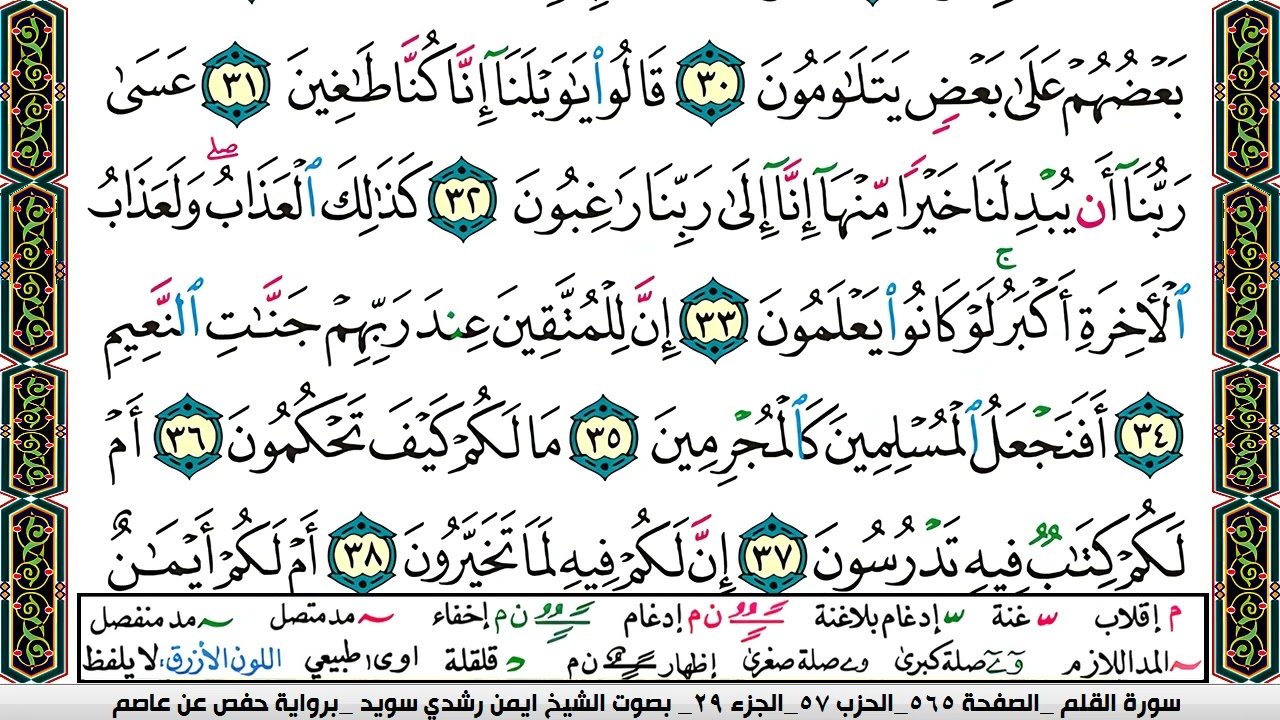 بَعْضُهُمْ عَلَىٰ بَعْضٍ يَتَلَٰوَمُونَ ٣٠ قَالُوا۟ يَٰوَيْلَنَآ إِنَّا كُنَّا طَٰغِينَ ٣١ عَسَىٰ
رَبُّنَآ أَن يُبْدِلَنَا خَيْرًا مِّنْهَآ إِنَّآ إِلَىٰ رَبِّنَا رَٰغِبُونَ ٣٢ كَذَٰلِكَ ٱلْعَذَابُ ۖ وَلَعَذَابُ
ٱلْءَاخِرَةِ أَكْبَرُ ۚ لَوْ كَانُوا۟ يَعْلَمُونَ ٣٣ إِنَّ لِلْمُتَّقِينَ عِندَ رَبِّهِمْ جَنَّٰتِ ٱلنَّعِيمِ
٣٤ أَفَنَجْعَلُ ٱلْمُسْلِمِينَ كَٱلْمُجْرِمِينَ ٣٥ مَا لَكُمْ كَيْفَ تَحْكُمُونَ ٣٦ أَمْ
لَكُمْ كِتَٰبٌ فِيهِ تَدْرُسُونَ ٣٧ إِنَّ لَكُمْ فِيهِ لَمَا تَخَيَّرُونَ ٣٨ أَمْ لَكُمْ أَيْمَٰنٌ
م إقلاب غنة إدغام بلاغنة ن م إدغام ن م إخفاء مد متصل مد منفصل
المد اللازم صلة كبرى صلة صغرى إظهار ن م قلقلة اوى طبيعي اللون الأزرق، لا يلفظ
سورة القلم _الصفحة ٥٦٥_الحزب ٥٧_الجزء ٢٩_ بصوت الشيخ ايمن رشدي سويد _برواية حفص عن عاصم